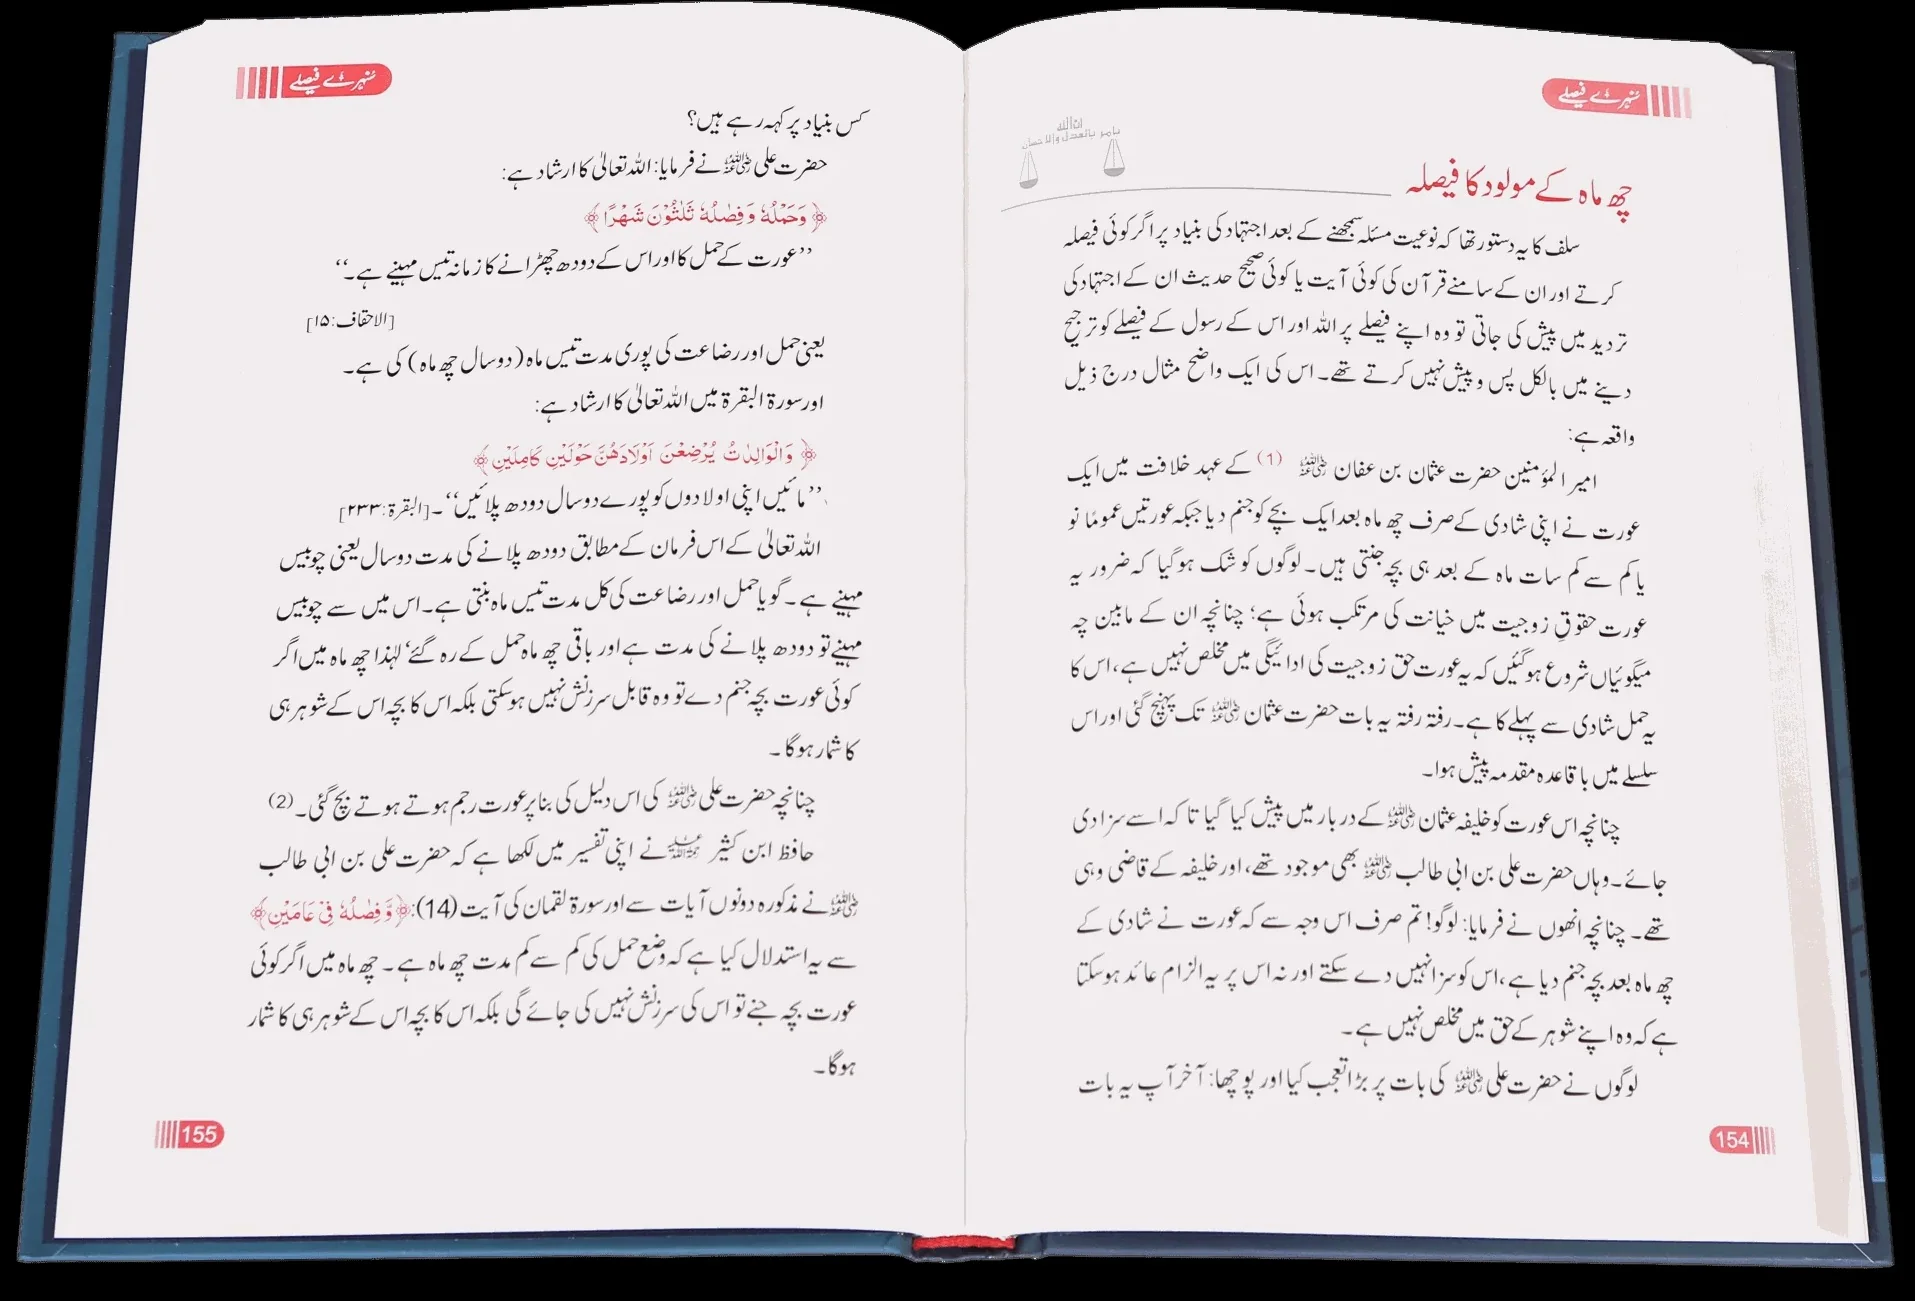 سنہرے فیصلے
ان الله
يامر بالعدل والاحسان
چھ ماہ کے مولود کا فیصلہ
سلف کا یہ دستور تھا کہ نوعیت مسئلہ سمجھنے کے بعد اجتہاد کی بنیاد پر اگر کوئی فیصلہ
کرتے اور ان کے سامنے قرآن کی کوئی آیت یا کوئی صحیح حدیث ان کے اجتہاد کی
تردید میں پیش کی جاتی تو وہ اپنے فیصلے پر اللہ اور اس کے رسول کے فیصلے کو ترجیح
دینے میں بالکل پس و پیش نہیں کرتے تھے۔ اس کی ایک واضح مثال درج ذیل
واقعہ ہے:
امیر المؤمنین حضرت عثمان بن عفان رضی اللہ عنہ (1) کے عہد خلافت میں ایک
عورت نے اپنی شادی کے صرف چھ ماہ بعد ایک بچے کو جنم دیا جبکہ عورتیں عمومًا نو
یا کم سے کم سات ماہ کے بعد ہی بچہ جنتی ہیں۔ لوگوں کو شک ہو گیا کہ ضرور یہ
عورت حقوقِ زوجیت میں خیانت کی مرتکب ہوئی ہے؛ چنانچہ ان کے مابین چہ
میگوئیاں شروع ہو گئیں کہ یہ عورت حق زوجیت کی ادائیگی میں مخلص نہیں ہے، اس کا
یہ حمل شادی سے پہلے کا ہے۔ رفتہ رفتہ یہ بات حضرت عثمان رضی اللہ عنہ تک پہنچ گئی اور اس
سلسلے میں باقاعدہ مقدمہ پیش ہوا۔
چنانچہ اس عورت کو خلیفہ عثمان رضی اللہ عنہ کے دربار میں پیش کیا گیا تاکہ اسے سزا دی
جائے۔ وہاں حضرت علی بن ابی طالب رضی اللہ عنہ بھی موجود تھے، اور خلیفہ کے قاضی وہی
تھے۔ چنانچہ انھوں نے فرمایا: لوگو! تم صرف اس وجہ سے کہ عورت نے شادی کے
چھ ماہ بعد بچہ جنم دیا ہے، اس کو سزا نہیں دے سکتے اور نہ اس پر یہ الزام عائد ہو سکتا
ہے کہ وہ اپنے شوہر کے حق میں مخلص نہیں ہے۔
لوگوں نے حضرت علی رضی اللہ عنہ کی بات پر بڑا تعجب کیا اور پوچھا: آخر آپ یہ بات
154
سنہرے فیصلے
کس بنیاد پر کہہ رہے ہیں؟
حضرت علی رضی اللہ عنہ نے فرمایا: اللہ تعالیٰ کا ارشاد ہے:
﴿ وَحَمْلُهٗ وَفِصٰلُهٗ ثَلٰثُوْنَ شَهْرًا ﴾
’’عورت کے حمل کا اور اس کے دودھ چھڑانے کا زمانہ تیس مہینے ہے۔‘‘
[الاحقاف: ۱۵]
یعنی حمل اور رضاعت کی پوری مدت تیس ماہ (دو سال چھ ماہ) کی ہے۔
اور سورۃ البقرۃ میں اللہ تعالیٰ کا ارشاد ہے:
﴿ وَالْوَالِدٰتُ يُرْضِعْنَ اَوْلَادَهُنَّ حَوْلَيْنِ كَامِلَيْنِ ﴾
’’مائیں اپنی اولادوں کو پورے دو سال دودھ پلائیں‘‘۔ [البقرۃ: ۲۳۳]
اللہ تعالیٰ کے اس فرمان کے مطابق دودھ پلانے کی مدت دو سال یعنی چوبیس
مہینے ہے۔ گویا حمل اور رضاعت کی کل مدت تیس ماہ بنتی ہے۔ اس میں سے چوبیس
مہینے تو دودھ پلانے کی مدت ہے اور باقی چھ ماہ حمل کے رہ گئے‘ لہٰذا چھ ماہ میں اگر
کوئی عورت بچہ جنم دے تو وہ قابل سرزنش نہیں ہو سکتی بلکہ اس کا بچہ اس کے شوہر ہی
کا شمار ہو گا۔
چنانچہ حضرت علی رضی اللہ عنہ کی اس دلیل کی بنا پر عورت رجم ہوتے ہوتے بچ گئی۔ (2)
حافظ ابن کثیر رحمۃ اللہ علیہ نے اپنی تفسیر میں لکھا ہے کہ حضرت علی بن ابی طالب
رضی اللہ عنہ نے مذکورہ دونوں آیات سے اور سورۃ لقمان کی آیت (14): ﴿ وَّفِصٰلُهٗ فِيْ عَامَيْنِ ﴾
سے یہ استدلال کیا ہے کہ وضع حمل کی کم سے کم مدت چھ ماہ ہے۔ چھ ماہ میں اگر کوئی
عورت بچہ جنے تو اس کی سرزنش نہیں کی جائے گی بلکہ اس کا بچہ اس کے شوہر ہی کا شمار
ہوگا۔
155